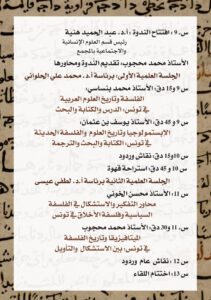 س. 9 : افتتاح الندوة : أ.د. عبد الحميد هنية
رئيس قسم العلوم الإنسانية
والاجتماعية بالمجمع
الأستاذ محمد محجوب: تقديم الندوة ومحاورها
الجلسة العلمية الأولى: برئاسة أ.د. محمد علي الحلواني
س. 9 و15 دق: الأستاذ محمد بنساسي:
الفلسفة وتاريخ العلوم العربية
في تونس: الدرس والكتابة والبحث
س. 9 و 45 دق: الأستاذ يوسف بن عثمان:
الابستمولوجيا وتاريخ العلوم والفلسفة الحديثة
في تونس: الكتابة والبحث والترجمة
س. 10و15 دق: نقاش وردود
س. 10 و 45 دق: استراحة قهوة
الجلسة العلمية الثانية برئاسة أ.د. لطفي عيسى
س. 11: الأستاذ محسن الخوني:
محاور التفكير والاستشكال في الفلسفة
السياسية وفلسفة الأخلاق في تونس
س. 11 و30 دق: الأستاذ محمد محجوب
الميتافيزيقا وتاريخ الفلسفة
في تونس: بين الاستشكال والتأويل
س. 12 : نقاش عام وردود
س. 13: اختتام اللقاء